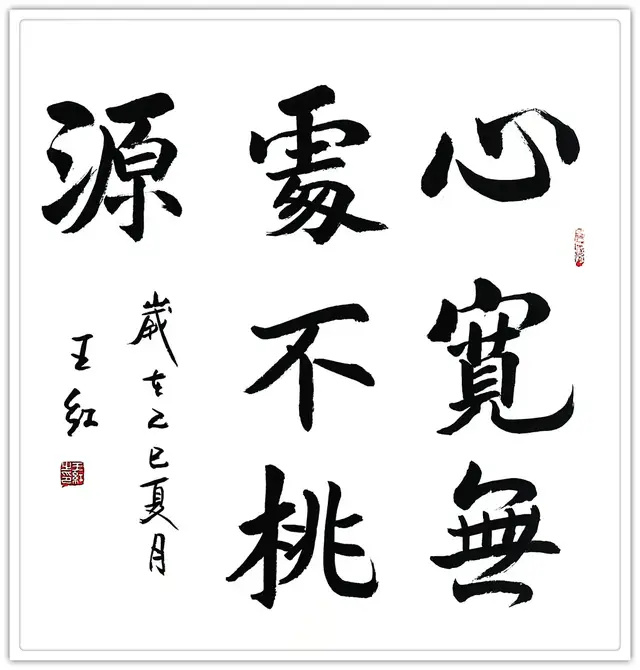 心寬無
處不桃
源
歲在乙巳夏月
王紅